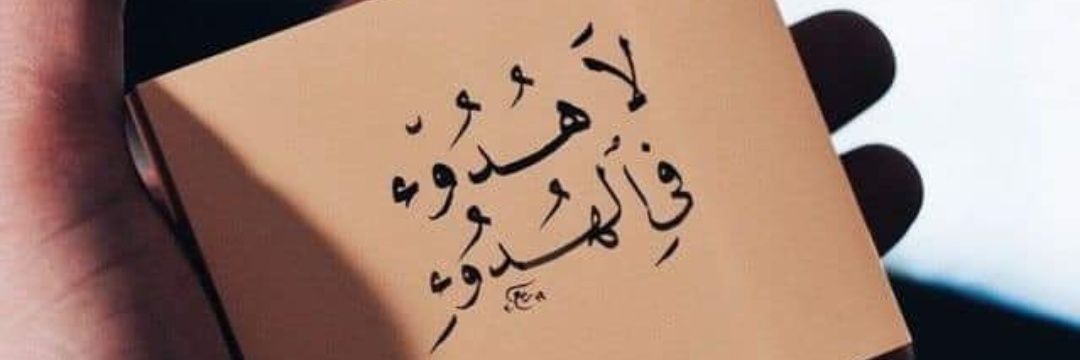 لَا هُدُوْء
فِي الهُدُوءِ